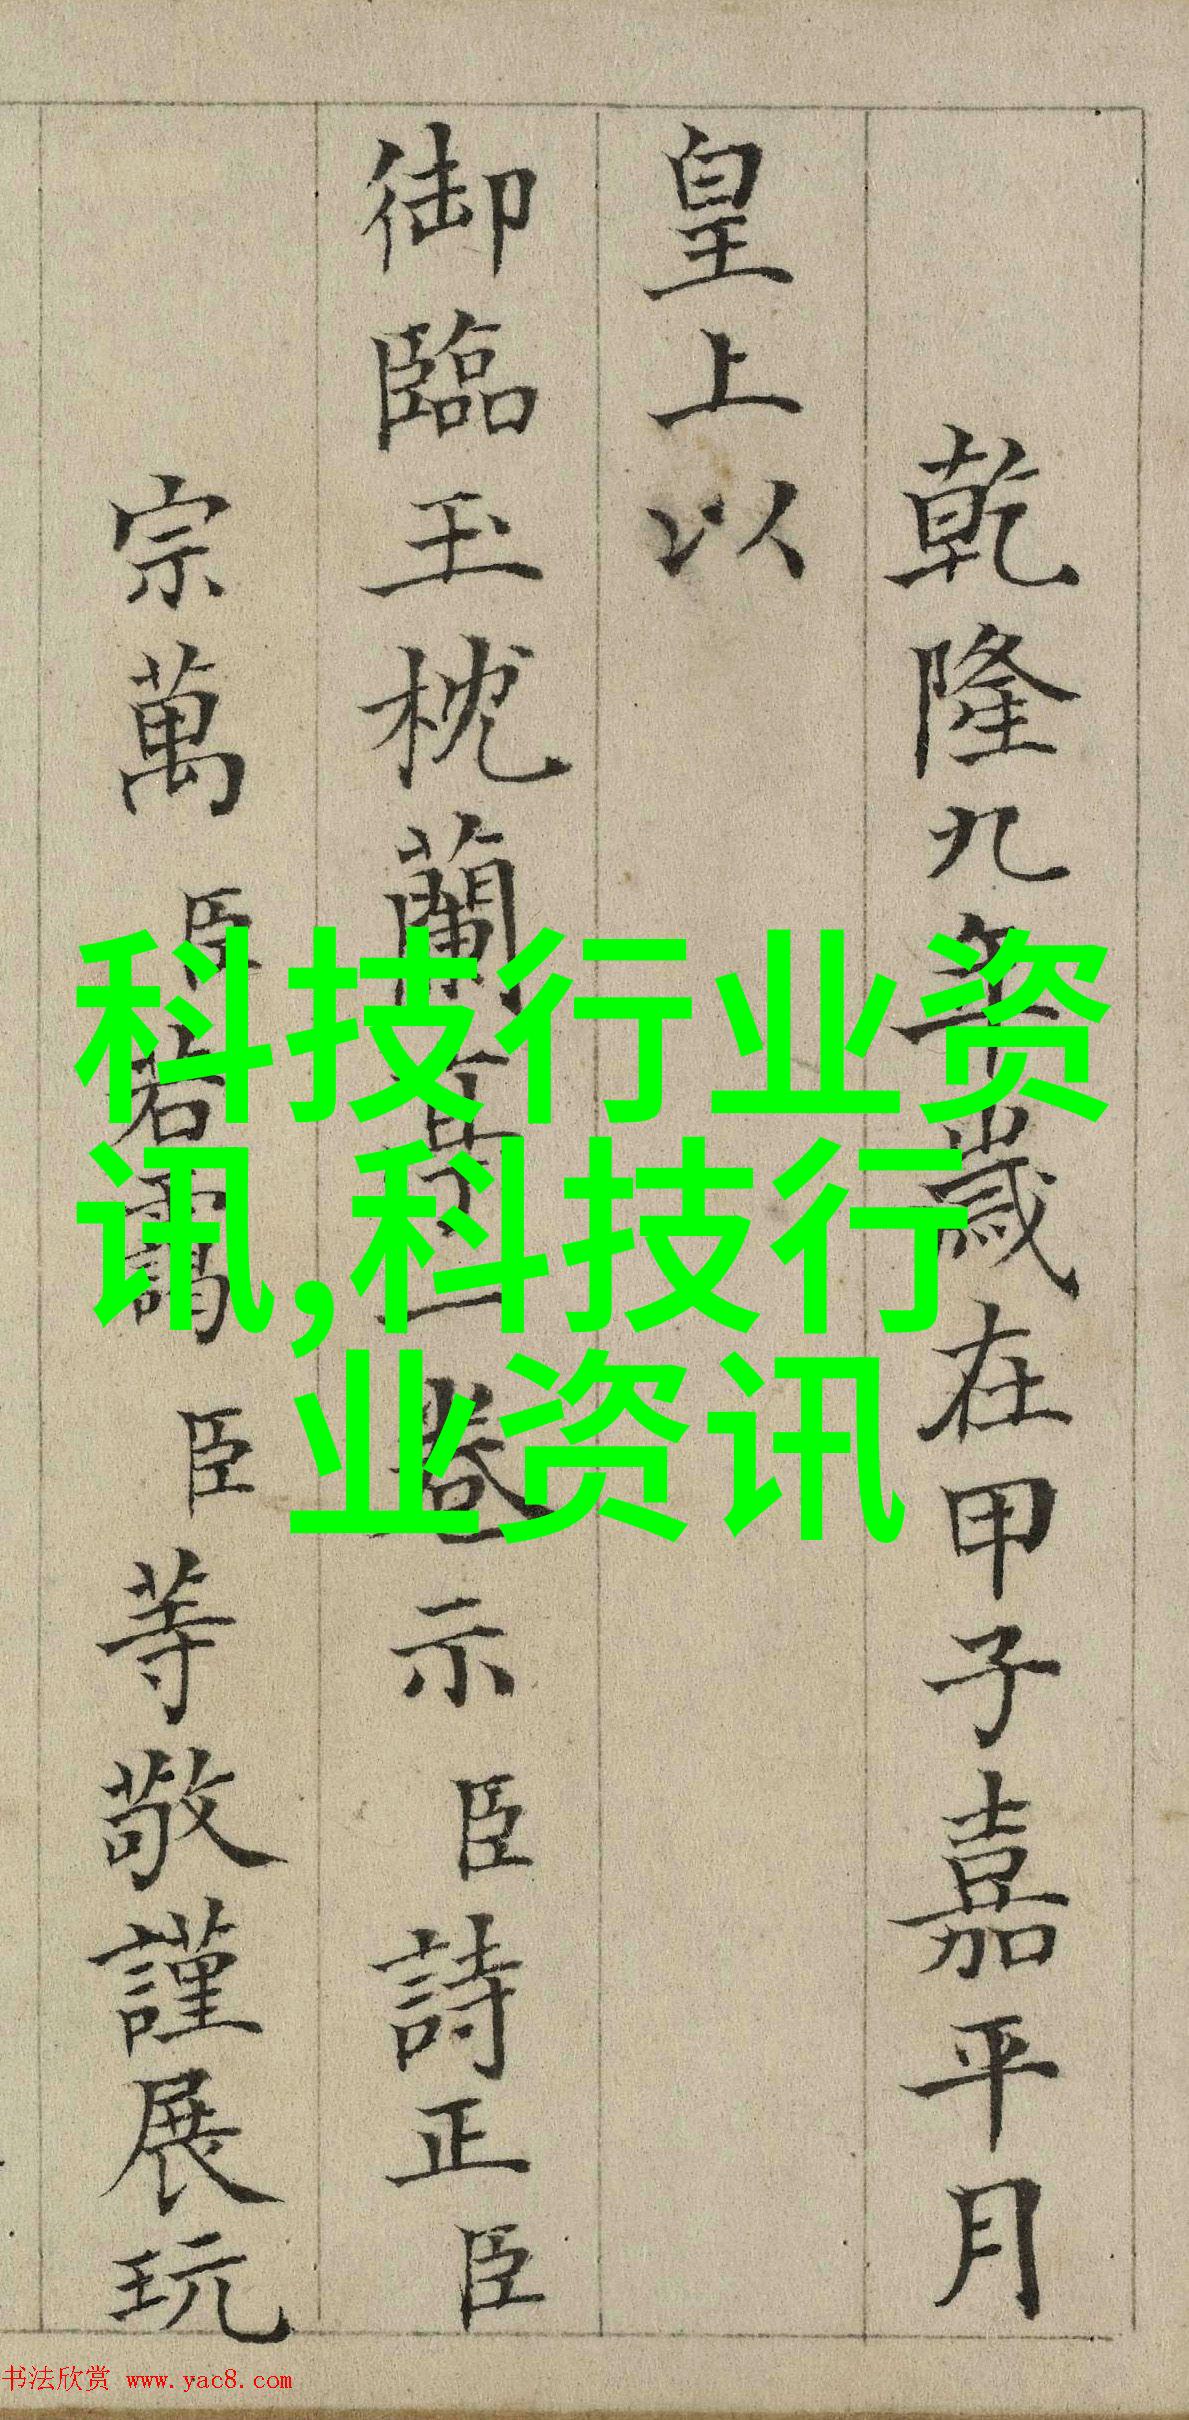 乾隆九年歲在甲子嘉平月
皇上以
御臨玉枕蘭亭一卷示臣詩正臣
宗萬臣若靄臣等敬謹展玩
科技行业资
讯,科技行
业资讯
书法欣赏 www.yac8.com